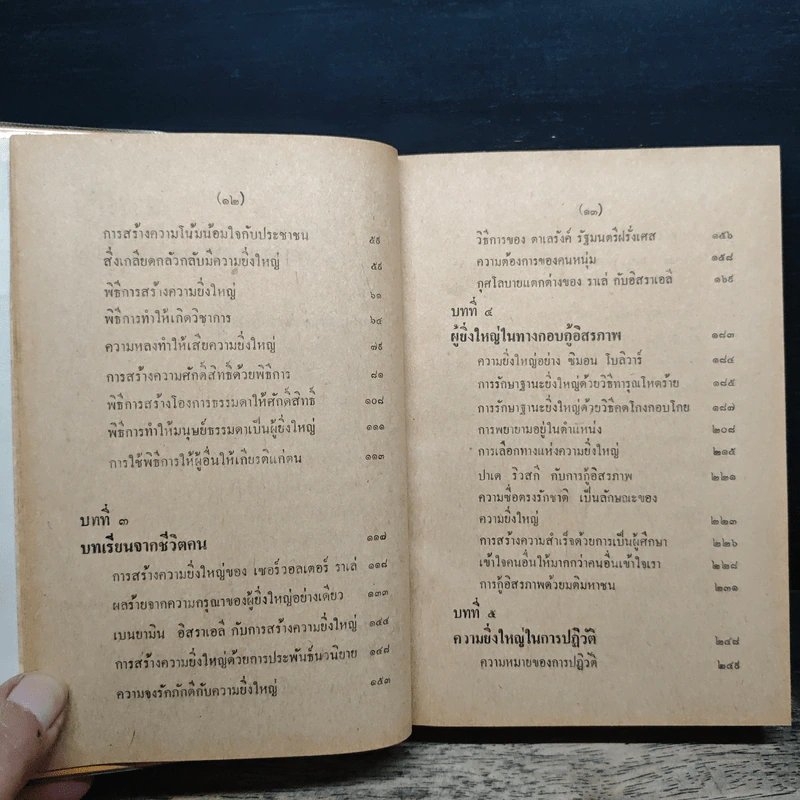 (๑๒)
การสร้างความโน้มน้อมใจกับประชาชน ๕๙
สิ่งเกลียดกลัวกลับมีความยิ่งใหญ่ ๕๙
พิธีการสร้างความยิ่งใหญ่ ๖๑
พิธีการทำให้เกิดวิชาการ ๖๔
ความหลงทำให้เสียความยิ่งใหญ่ ๗๙
การสร้างความศักดิ์สิทธิ์ด้วยพิธีการ ๘๑
พิธีการสร้างโองการธรรมดาให้ศักดิ์สิทธิ์ ๑๐๘
พิธีการทำให้มนุษย์ธรรมดาเป็นผู้ยิ่งใหญ่ ๑๑๑
การใช้พิธีการให้ผู้อื่นให้เกียรติแก่ตน ๑๑๓
บทที่ ๓
บทเรียนจากชีวิตคน ๑๑๗
การสร้างความยิ่งใหญ่ของ เซอร์วอลเตอร์ ราเล่ ๑๑๘
ผลร้ายจากความกรุณาของผู้ยิ่งใหญ่อย่างเดียว ๑๓๓
เบนยามิน อิสราเอลี กับการสร้างความยิ่งใหญ่ ๑๔๔
การสร้างความยิ่งใหญ่ด้วยการประพันธ์นวนิยาย ๑๔๘
ความจงรักภักดีกับความยิ่งใหญ่ ๑๕๓
(๑๓)
วิธีการของ ตาเลรังค์ รัฐมนตรีฝรั่งเศส ๑๕๖
ความต้องการของคนหนุ่ม ๑๕๘
กุศโลบายแตกต่างของ ราเล่ กับอิสราเอลี ๑๖๙
บทที่ ๔
ผู้ยิ่งใหญ่ในทางกอบกู้อิสรภาพ ๑๘๓
ความยิ่งใหญ่อย่าง ซิมอน โบลิวาร์ ๑๘๔
การรักษาฐานะยิ่งใหญ่ด้วยวิธีทารุณโหดร้าย ๑๘๕
การรักษาฐานะยิ่งใหญ่ด้วยวิธีคดโกงกอบโกย ๑๘๗
การพยายามอยู่ในตำแหน่ง ๒๐๘
การเลือกทางแห่งความยิ่งใหญ่ ๒๑๕
ปาเด ริวสกี้ กับการกู้อิสรภาพ ๒๒๑
ความซื่อตรงรักชาติ เป็นลักษณะของ
ความยิ่งใหญ่ ๒๒๓
การสร้างความสำเร็จด้วยการเป็นผู้ศึกษา ๒๒๖
เข้าใจคนอื่นให้มากกว่าคนอื่นเข้าใจเรา ๒๒๘
การกู้อิสรภาพด้วยมติมหาชน ๒๓๑
บทที่ ๕
ความยิ่งใหญ่ในการปฏิวัติ ๒๔๘
ความหมายของการปฏิวัติ ๒๔๙